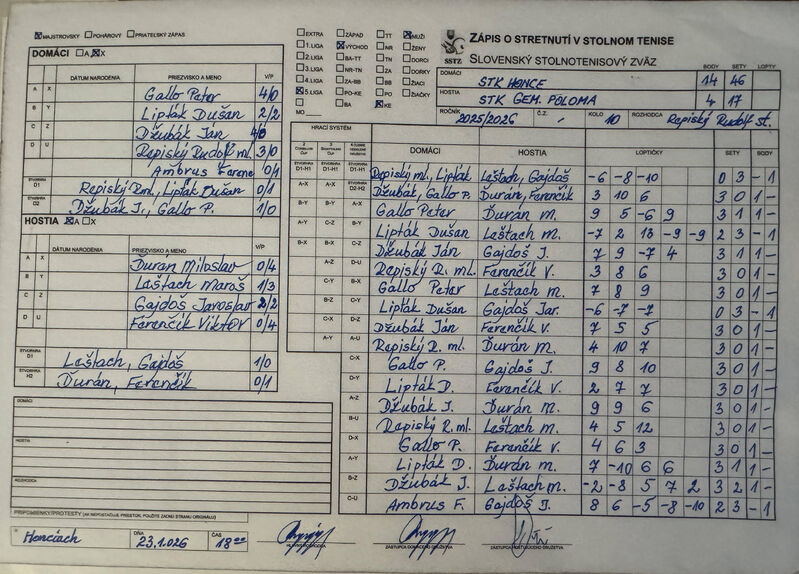 MAJSTROVSKÝ POHÁROVÝ PRIATEĽSKÝ ZÁPAS
DOMÁCI A X
DÁTUM NARODENIA PRIEZVISKO A MENO V/P
A X Gallo Peter 4/0
B Y Lipták Dušan 2/2
C Z Džubák Ján 4/0
D U Repiský Rudolf ml. 3/0
Ambrus 0/1
ŠTVORHRA D1 Repiský R.ml., Lipták Dušan 0/1
D2 Džubák J., Gallo P. 1/0
HOSTIA A X
DÁTUM NARODENIA PRIEZVISKO A MENO V/P
A X Ďurán Miloslav 0/4
B Y Leštach Maroš 1/3
C Z Gajdoš Jaroslav 2/2
D U Ferenčík Viktor 0/4
ŠTVORHRA Leštach, Gajdoš 1/0
ŠTVORHRA H2 Ďurán, Ferenčík 0/1
DOMÁCI
HOSTIA
ROZHODCA
PRIPOMIENKY/PROTESTY (AK NEPOSTAČUJE PRIESTOR, POUŽITE ZADNÚ STRANU ORIGINÁLU)
Honciach DŇA 23.1.026 ČAS 18 00
EXTRA ZÁPAD TT MUŽI
1.LIGA VÝCHOD NR ŽENY
2.LIGA BA-TT TN DORCI
3.LIGA NR-TN ZA DORKY
4.LIGA ZA-BB BB ŽIACI
5.LIGA PO-KE PO ŽIAČKY
BA KE
MO
SSTZ
ZÁPIS O STRETNUTÍ V STOLNOM TENISE
SLOVENSKÝ STOLNOTENISOVÝ ZVÄZ
BODY SETY LOPTY
DOMÁCI STK HONCE 14 46
HOSTIA STK GEM. POLOMA 4 17
ROČNÍK 2025/2026 Č.Z. KOLO 10 ROZHODCA Repiský Rudolf st.
HRACÍ SYSTÉM
DOMÁCI HOSTIA LOPTIČKY SETY BODY
D1-H1 Repiský ml., Lipták Leštach, Gajdoš -6 -8 -10 0 3 - 1
D2-H2 Džubák, Gallo P. Ďurán, Ferenčík 3 10 6 3 0 1 -
A-X Gallo Peter Ďurán M. 9 5 -6 9 3 1 1 -
B-Y Lipták Dušan Leštach M. -7 2 13 -9 -9 2 3 - 1
C-Z Džubák Ján Gajdoš J. 7 9 -7 4 3 1 1 -
D-U Repiský R. ml. Ferenčík V. 3 8 6 3 0 1 -
A-Y Gallo Peter Leštach M. 7 8 9 3 0 1 -
B-Z Lipták Dušan Gajdoš Jar. -6 -7 -7 0 3 - 1
Džubák Ján Ferenčík V. 7 5 5 3 0 1 -
Repiský R. ml. Ďurán M. 4 10 7 3 0 1 -
C-X Gallo P. Gajdoš J. 9 8 10 3 0 1 -
D-Y Lipták D. Ferenčík V. 2 7 7 3 0 1 -
A-Z Džubák J. Ďurán M. 9 9 6 3 0 1 -
B-U Repiský R. ml. Leštach M. 4 5 12 3 0 1 -
D-X Gallo P. Ferenčík V. 4 6 3 3 0 1 -
A-Y Lipták D. Ďurán M. 7 -10 6 6 3 1 1 -
B-Z Džubák J. Leštach M. -2 -8 5 7 2 3 2 1 -
C-U Ambrus F. Gajdoš J. 8 6 -5 -8 -10 2 3 - 1
ZÁSTUPCA DOMÁCEHO DRUŽSTVA ZÁSTUPCA HOSŤUJÚCEHO DRUŽSTVA